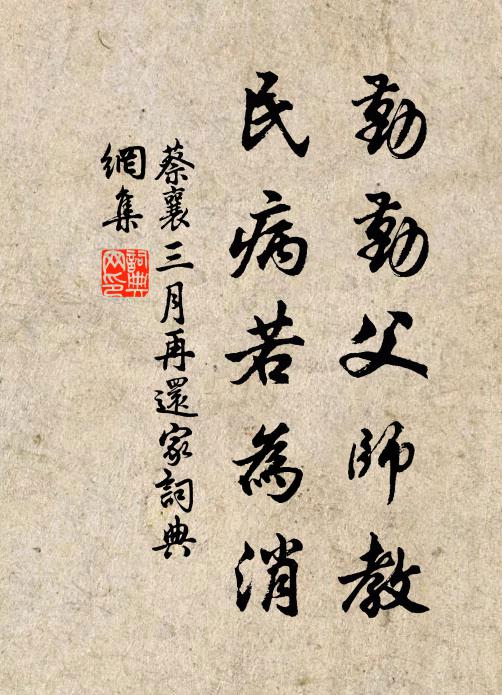 勤勤父師教
民病若為消
蔡襄三月再還家詞典
網集
詞典
网印